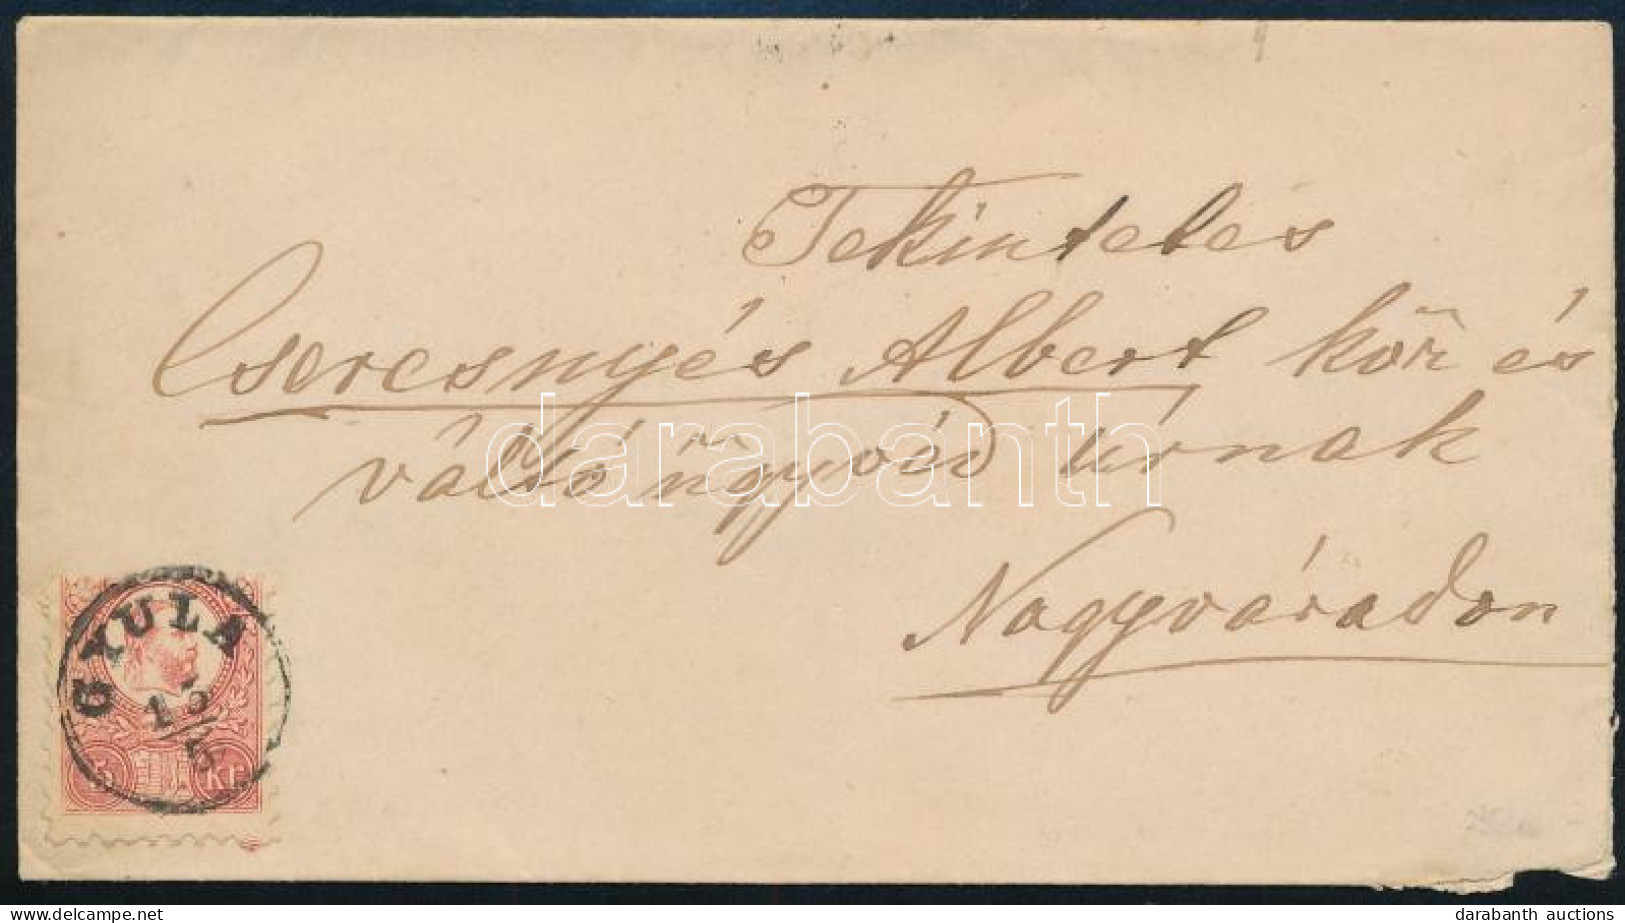 Tekintetes
Cseresnyés Albert köz és
váltó ügyvéd úrnak
Nagyváradon
GYULA
15/5
5 Kr.
darabanth
www.delcampe.net
darabanth auctions